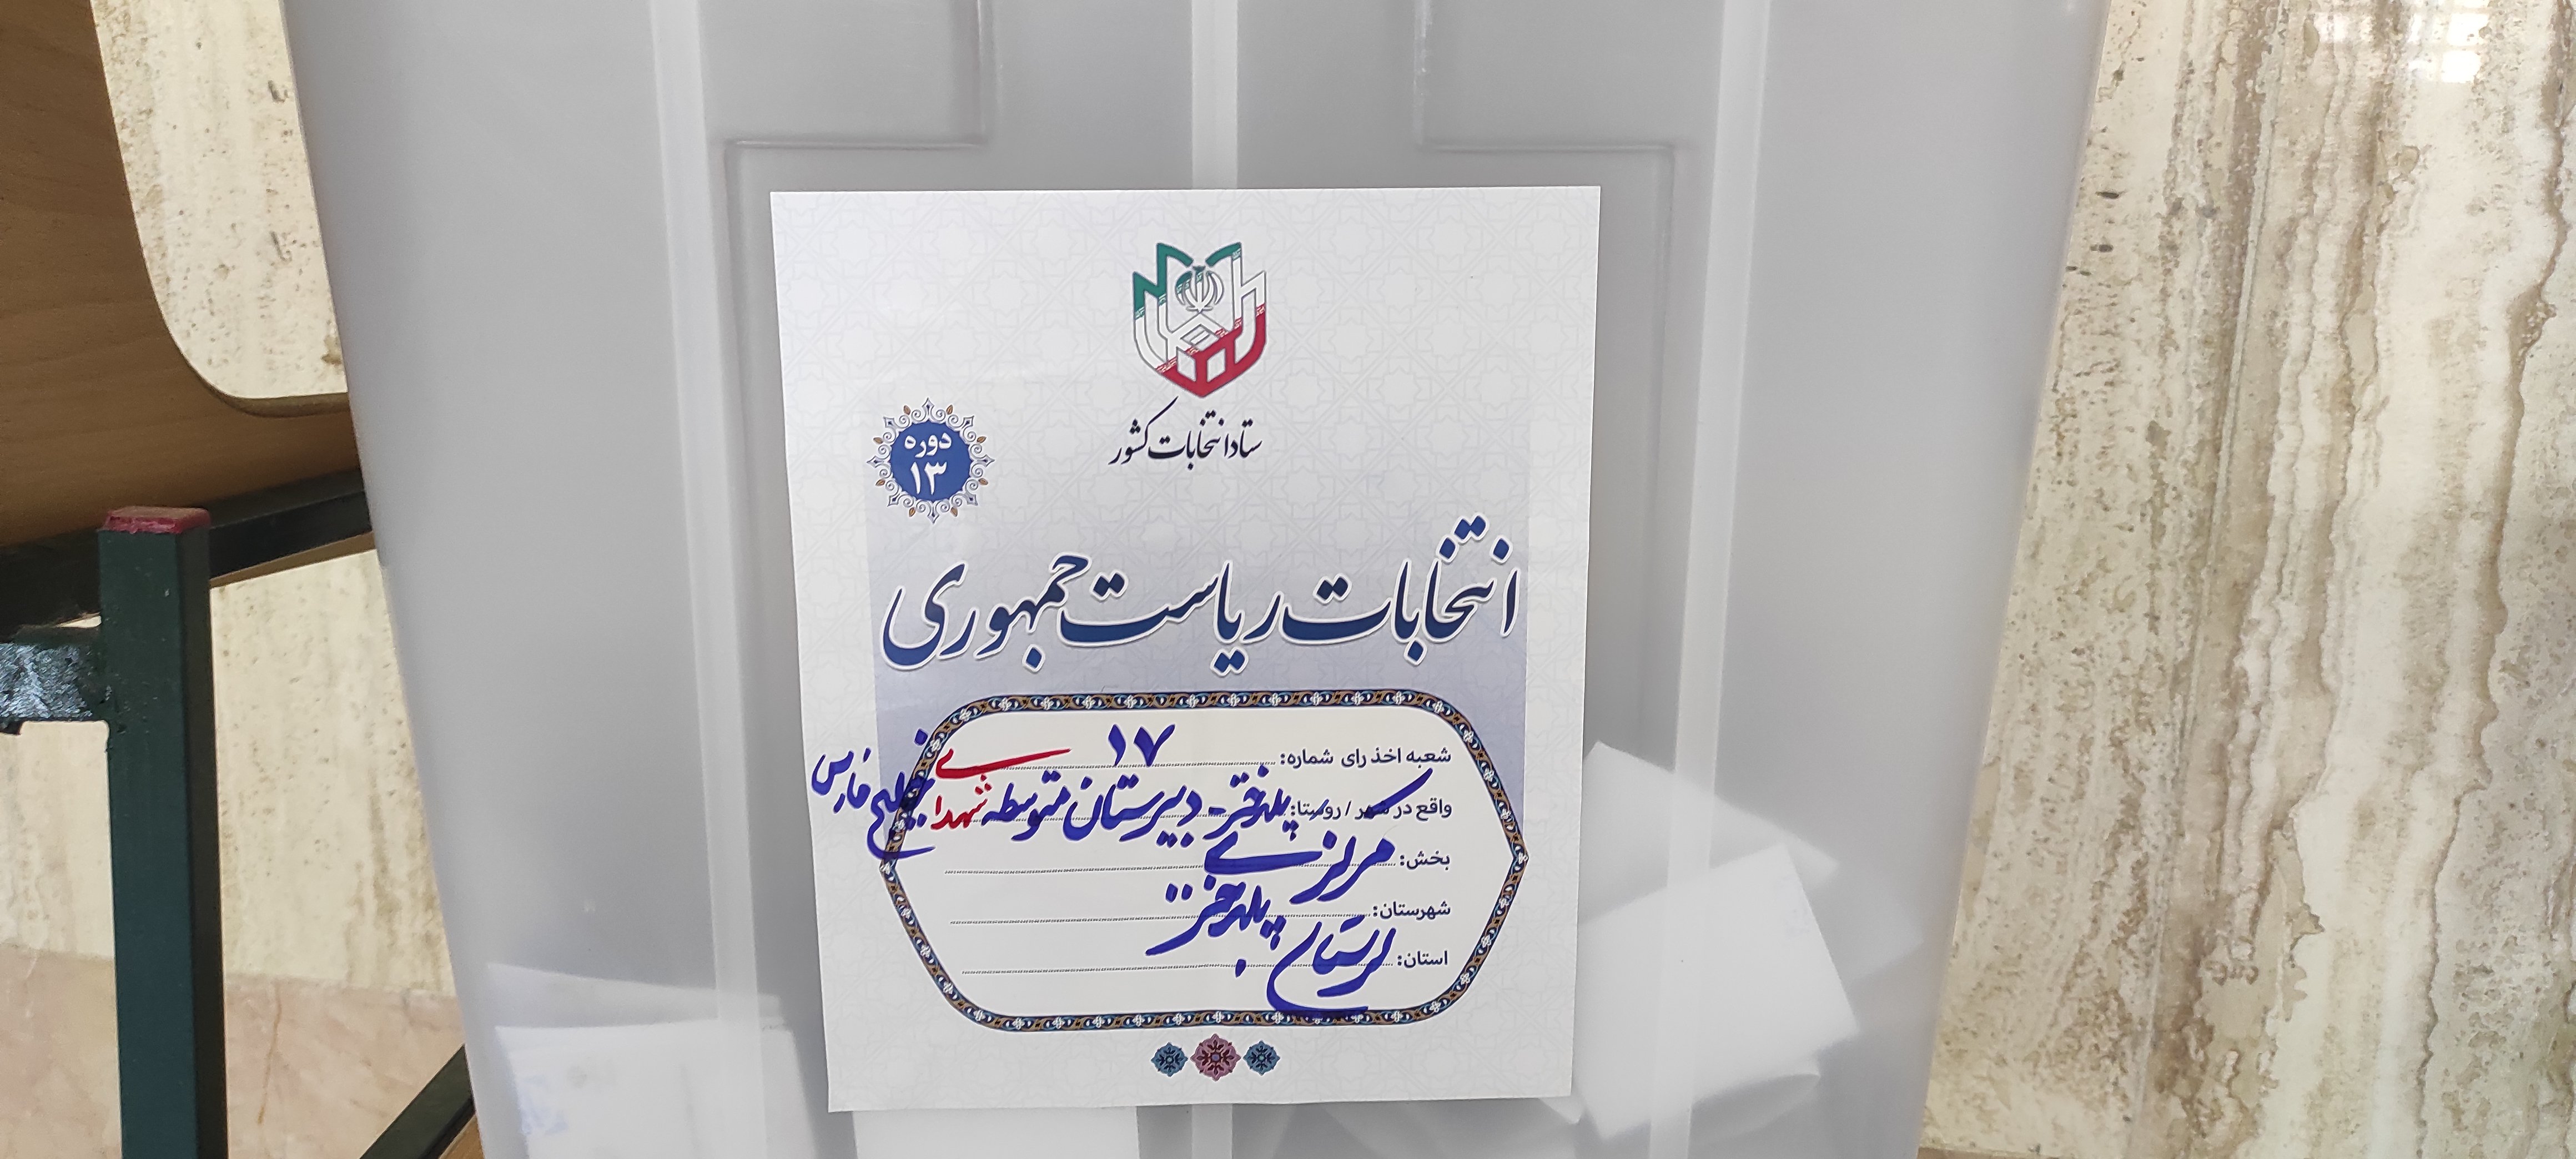 ستاد انتخابات کشور
دوره
۱۳
انتخابات ریاست جمهوری
شعبه اخذ رای شماره: ۱۷
واقع در شهر / روستا: پلدختر - دبیرستان متوسطه شهدای خلیج فارس
بخش: مرکزی
شهرستان: پلدختر
استان: لرستان